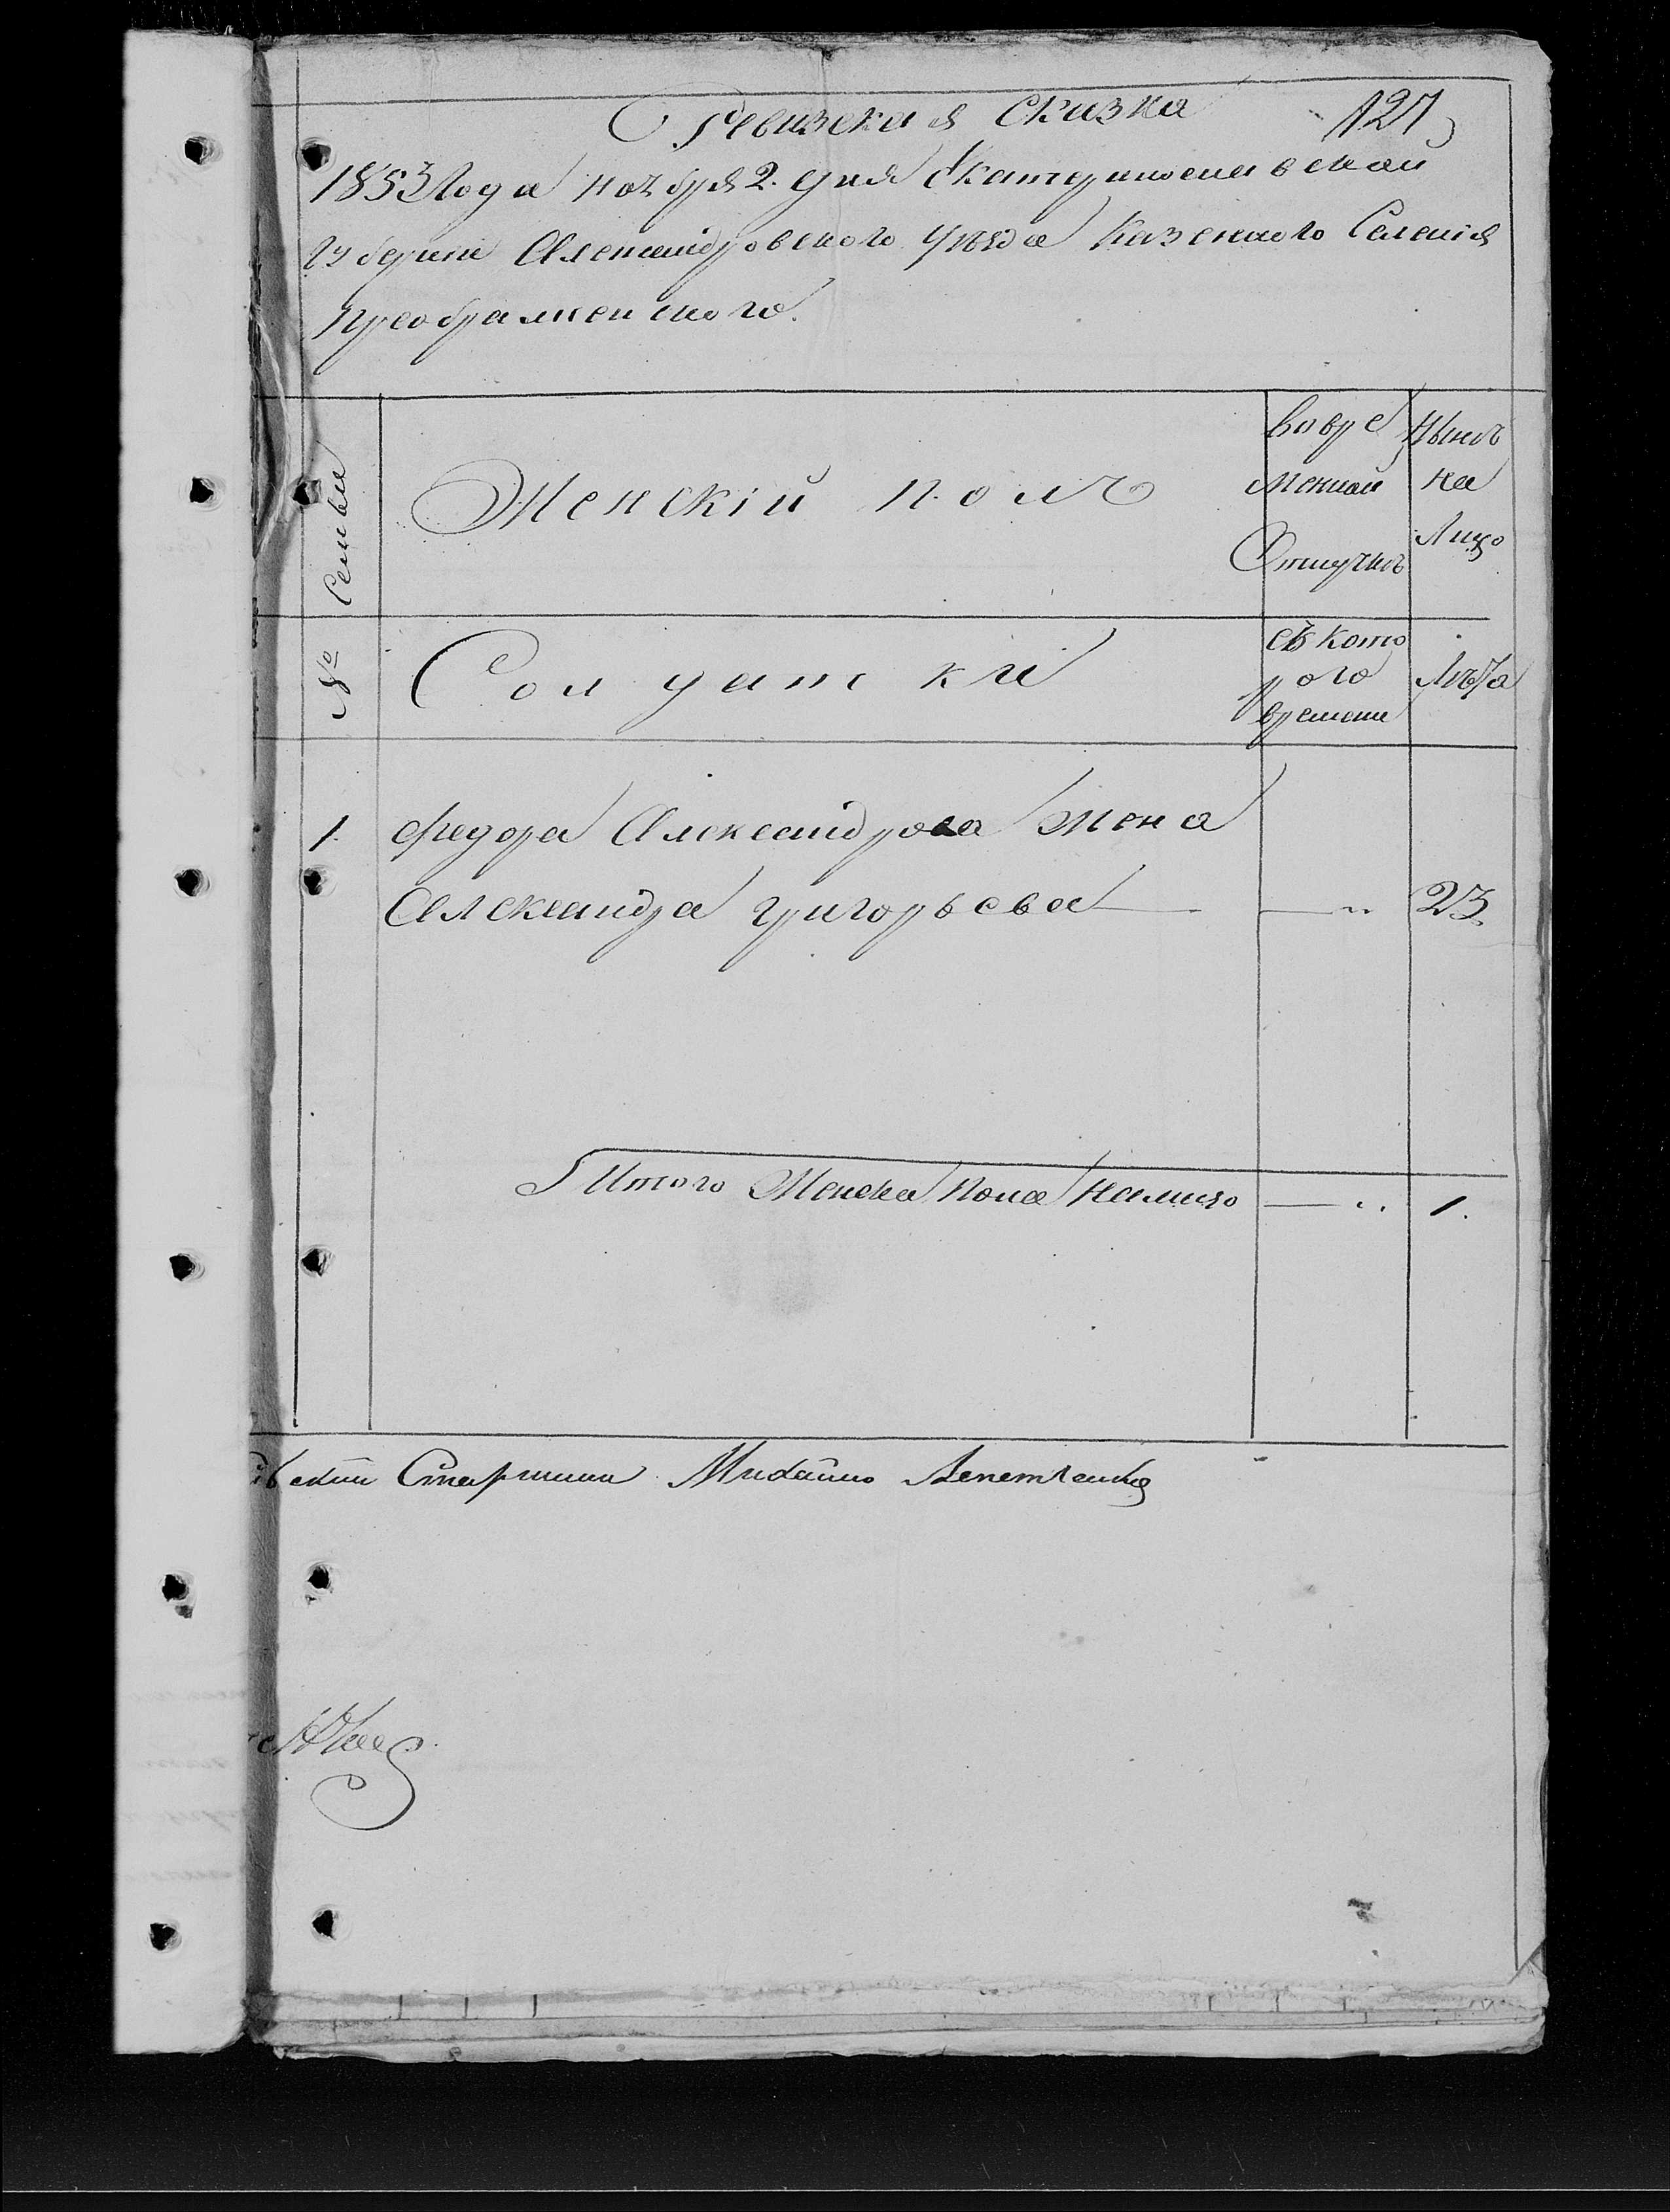 Ревизская Сказка
127
1853 Года ноября 2. дня Екатеринославской
Губернии Александровского Уѣзда Казенного Селенія
Преображенского.
№ Семьи
Женскій полъ
Вовре
менной
Отлучкѣ
Нынѣ
на
Лицо
Солдатки
съ кото
рого
времени
Лѣта
1. Федора Александрова Жена
Александра Григорьева — — " 23
Итого Женска пола налицо — " 1.
Старшина Михайло